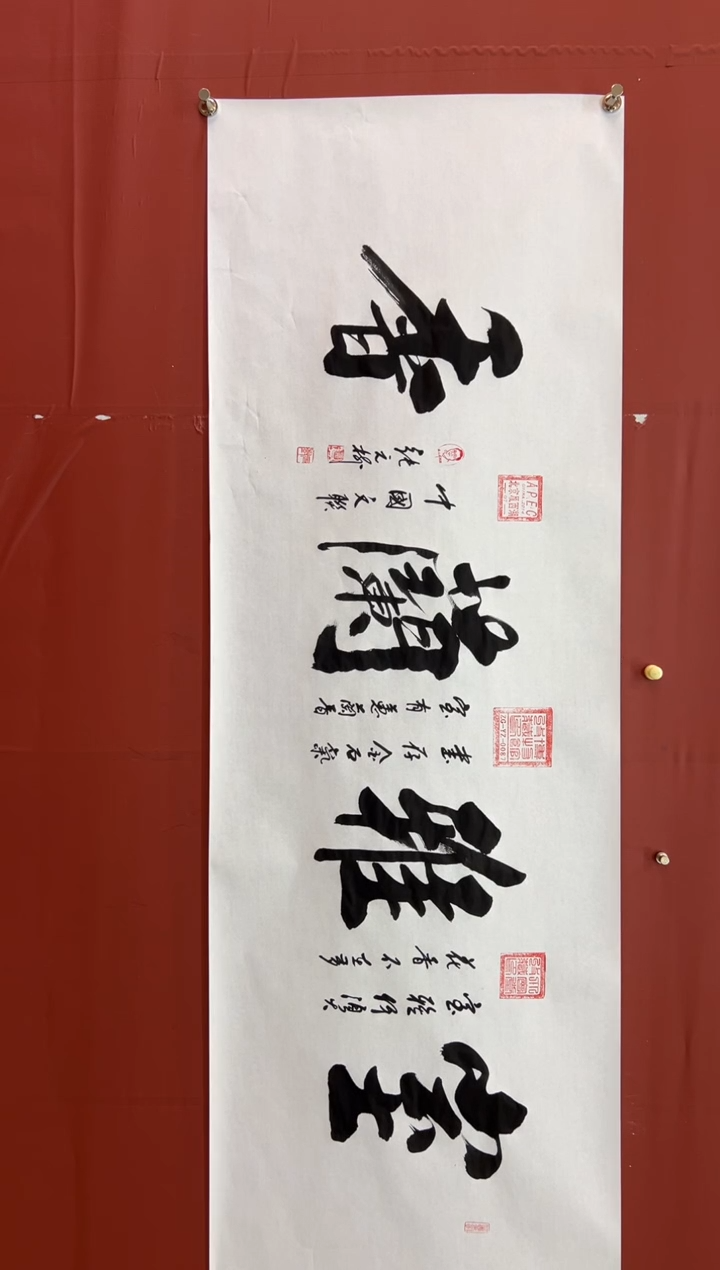 室
室雅何須大
花香不在多
雅
書存金石氣
室有蕙蘭香
蘭
中國文聯
香
APEC